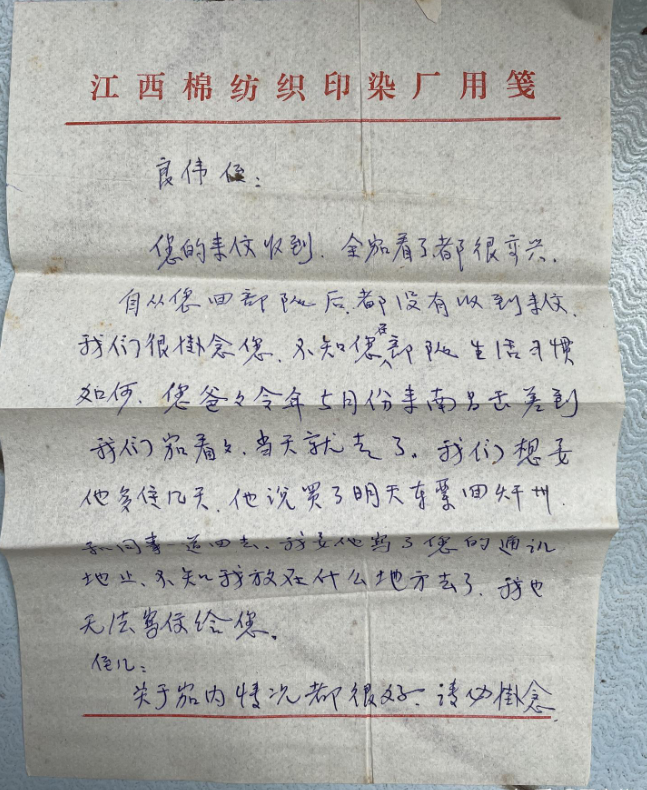 江西棉纺织印染厂用笺
良伟侄：
您的来信收到．全家看了都很高兴．
自从您回部队后．都没有收到来信．
我们很掛念您．不知您在部队生活习惯
如何．您爸々今年5月份来南昌出差到
我们家看々．当天就走了。我们想要
他多住几天．他说买了明天车票回
和同事一道回去．我要他写了您的通讯
地止．不知我放在什么地方去了．我也
无法写信给您。
侄儿：
关于家内情况都很好．请勿掛念